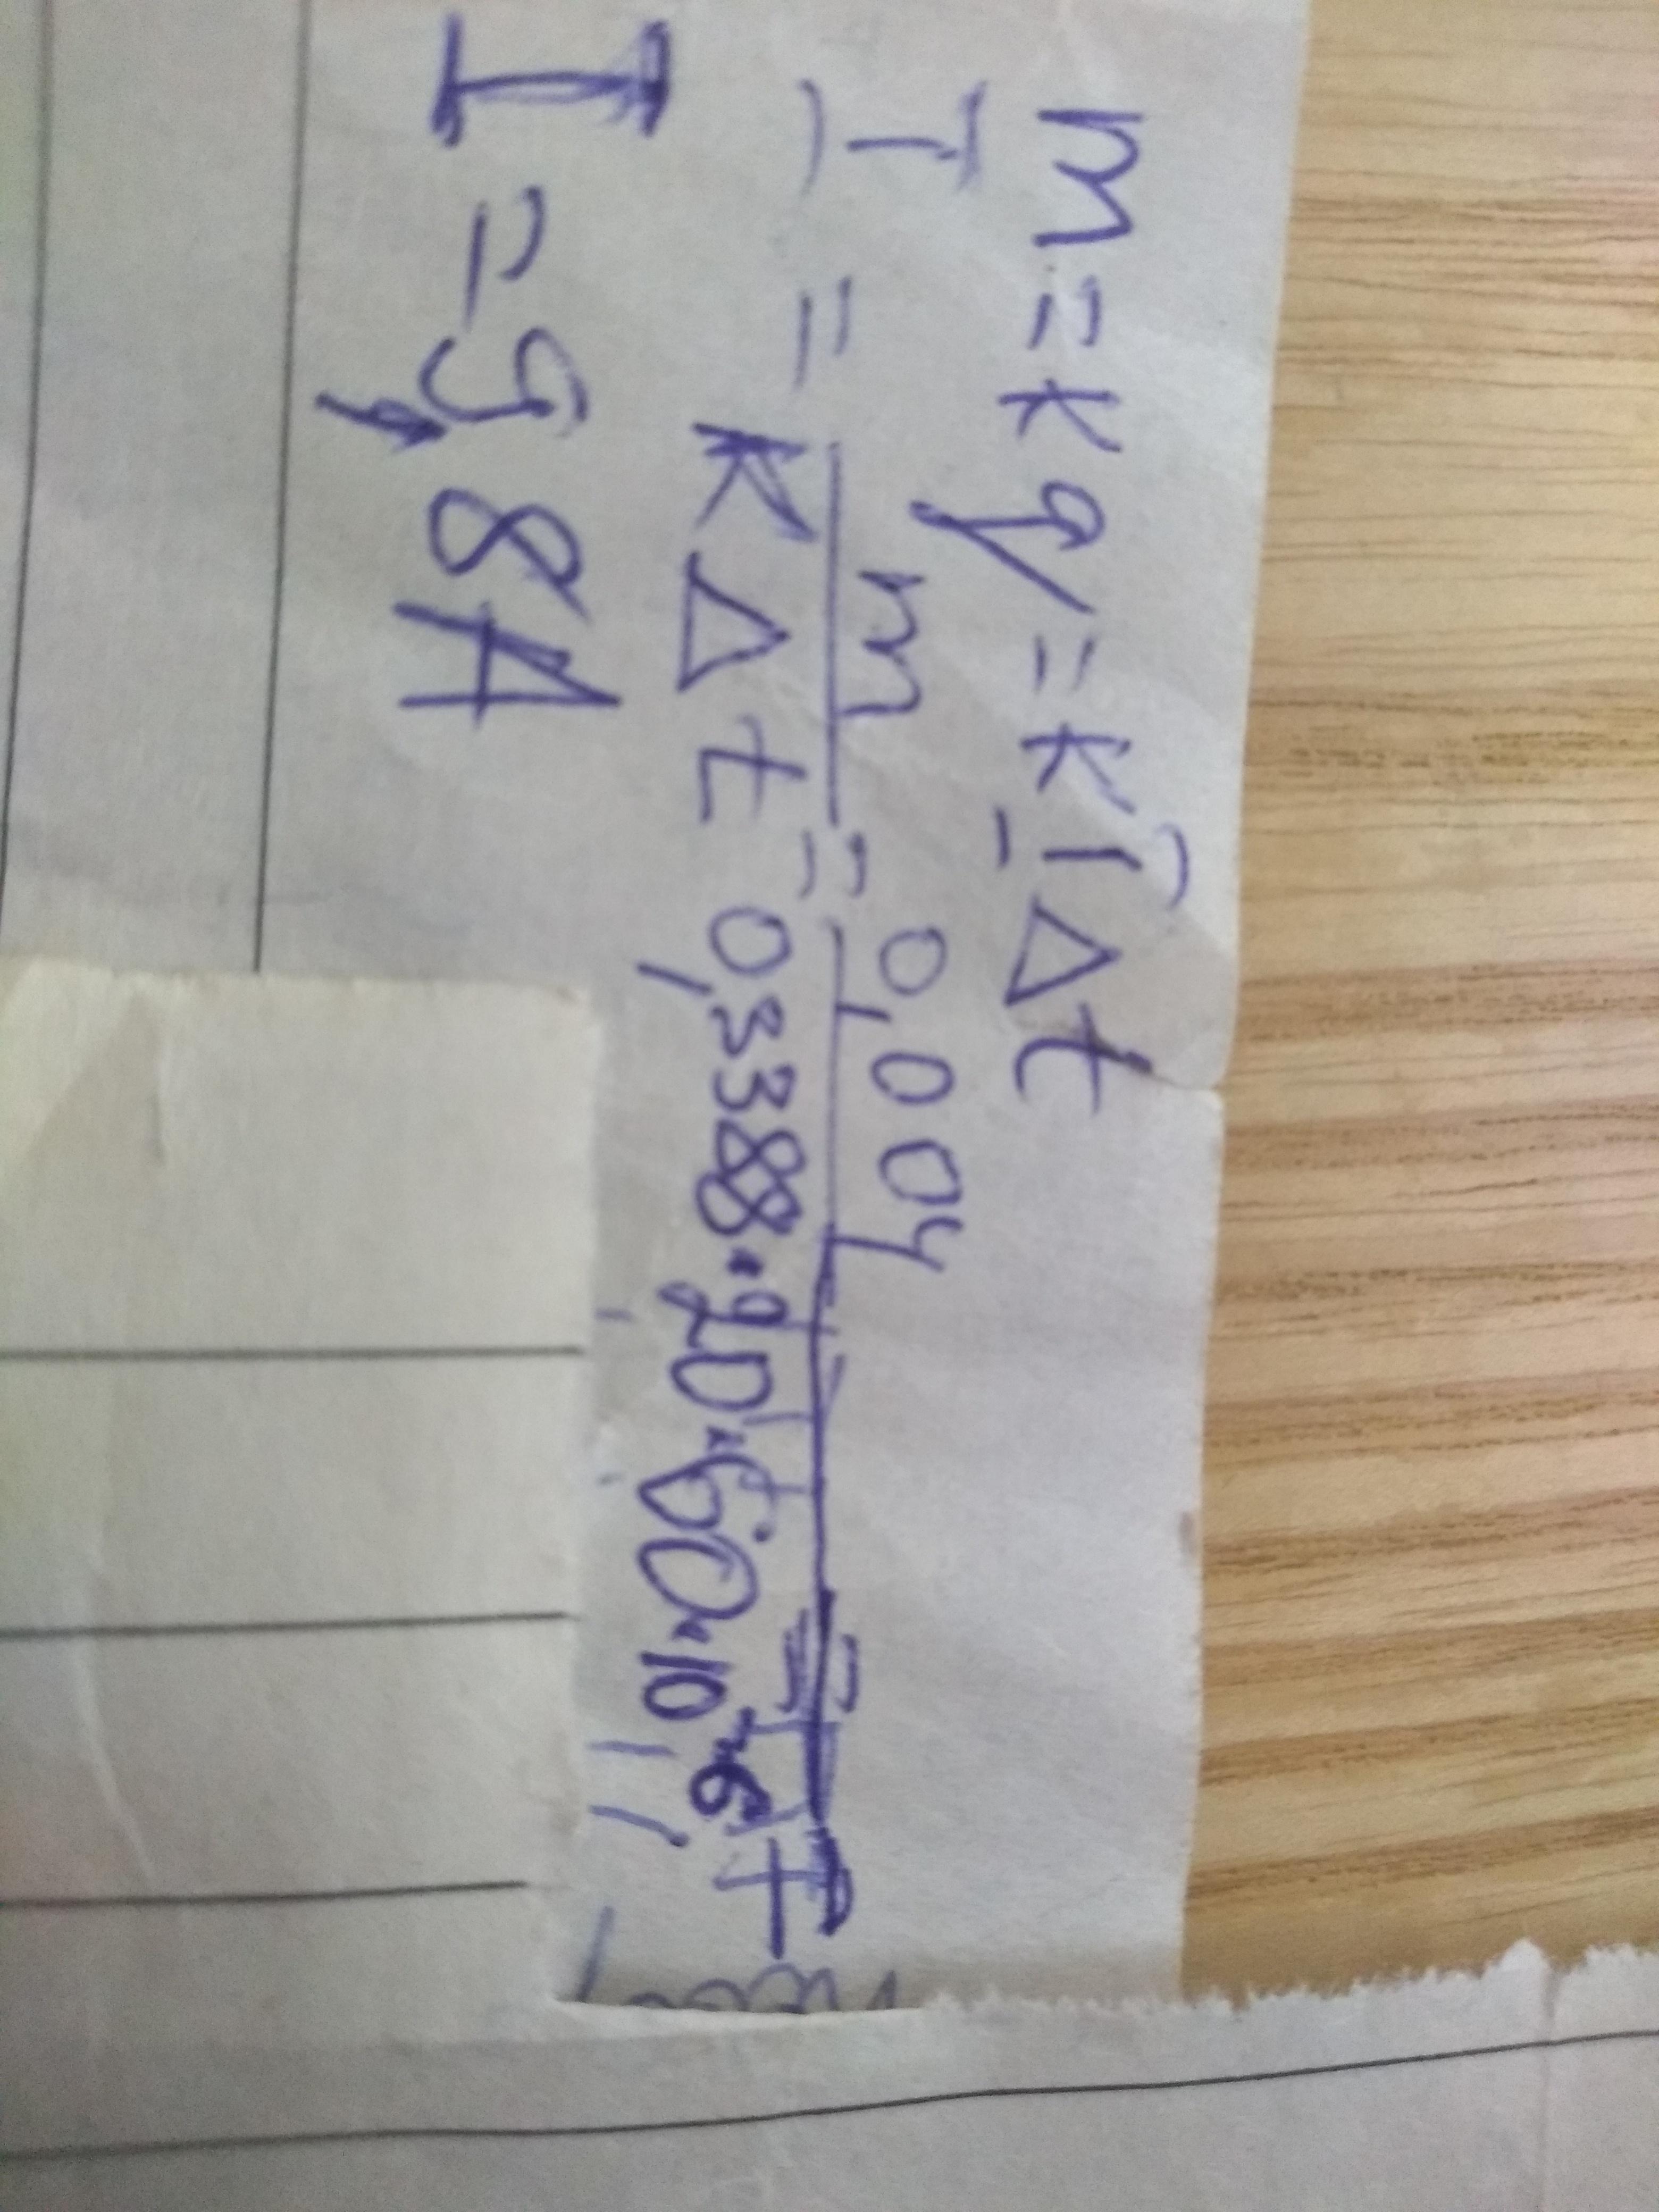 m = kq = kIΔt
I = m/(kΔt) = 0,004/(0,3388·20·60·10⁻⁶)
I = 9,8A